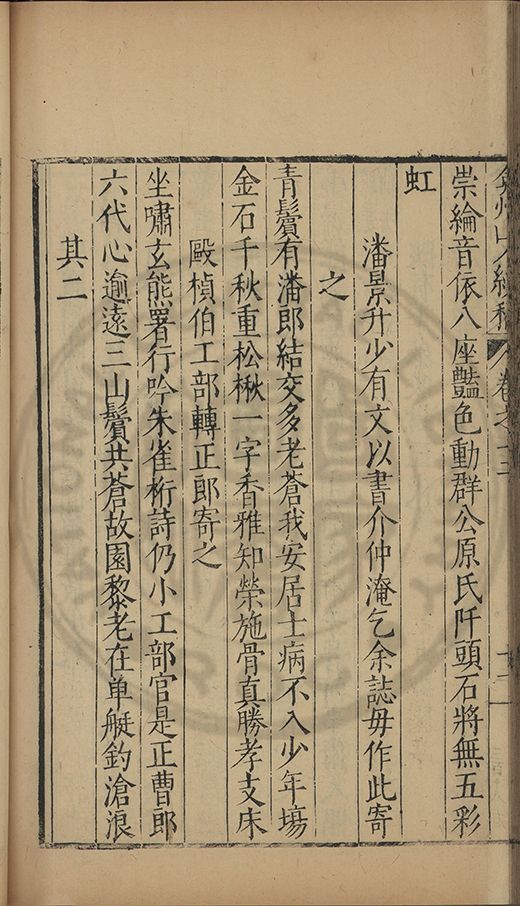 弇州山人續稿 卷之十三
崇綸音依八座豔色動群公原氏阡頭石將無五彩
虹
潘景升少有文以書介仲淹乞余誌毋作此寄
之
青鬢有潘郎結交多老蒼我安居士病不入少年場
金石千秋重松楸一字香雅知榮施骨真勝孝支床
毆楨伯工部轉正郎寄之
坐嘯玄熊署行吟朱雀桁詩仍小工部官是正曹郎
六代心逾遠三山鬢共蒼故園黎老在单艇釣滄浪
其二